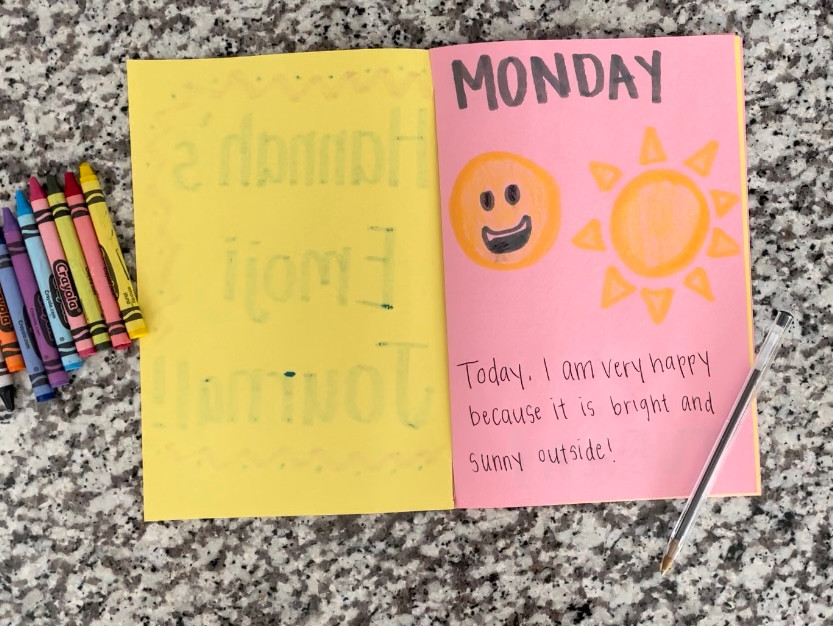 Hannah's
Emoji
Journal!
MONDAY
Today, I am very happy
because it is bright and
sunny outside!
Crayola